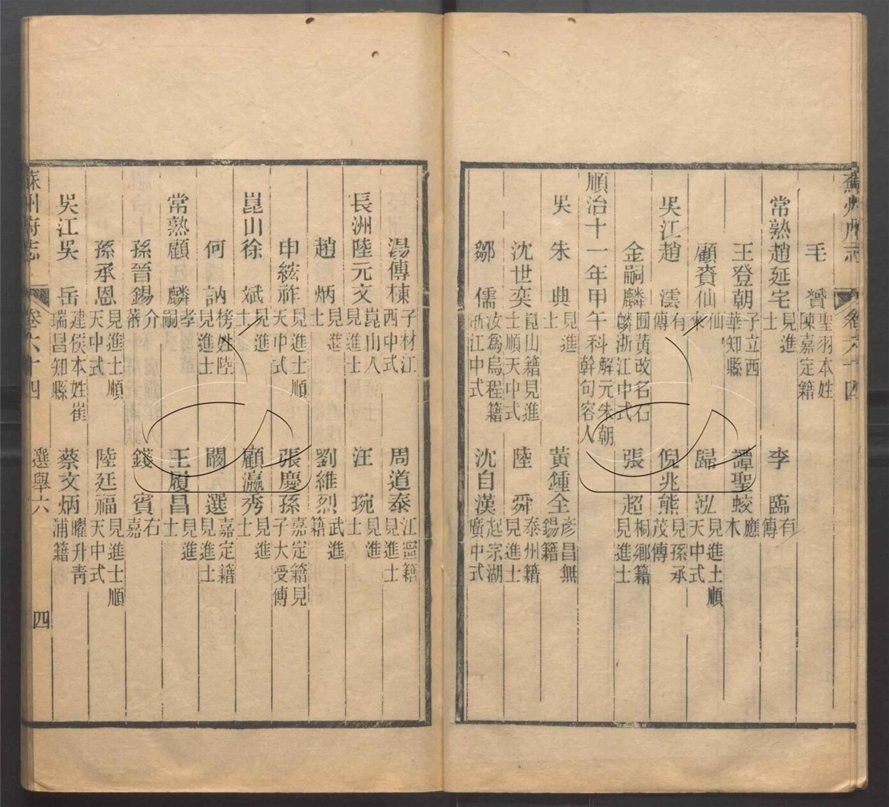 蘇州府志 卷六十四
毛贊 聖羽本姓陳嘉定籍
常熟趙延宅 見進士 李臨 有傳
王登朝 子立西華知縣 譚聖蛟 應木
顧贄仙 仙來 歸泓 見進士順天中式
吳江趙澐 有傳 倪兆熊 見孫承茂傳
金嗣麟 圃黃改名石麟浙江中式 張超 桐鄉籍見進士
順治十一年甲午科 解元朱朝幹句容人
吳 朱典 見進士 黃鍾全 彥昌無錫籍
沈世奕 崑山籍見進士順天中式 陸舜 泰州籍見進士
鄒儒 汝為烏程籍浙江中式 沈自漢 起宗湖廣中式
湯傳楝 子材江西中式 周道泰 江寧籍見進士
長洲陸元文 崑山人見進士 汪琬 見進士
趙炳 見進士 劉維烈 武進籍
申綋祚 見進士順天中式 張慶孫 嘉定籍見子大受傳
崑山徐斌 見進士 顧瀛秀 見進士
何訥 榜姓陸見進士 闞選 嘉定籍見進士
常熟顧麟 孝嗣 王履昌 見進士
孫晉錫 介蕃 錢賓 右嘉
孫承恩 見進士順天中式 陸廷福 見進士順天中式
吳江吳岳 建侯本姓崔瑞昌知縣 蔡文炳 曜升青浦籍
蘇州府志 卷六十四 選舉六 四